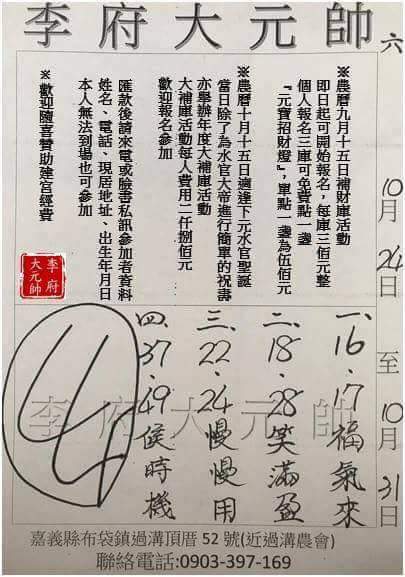 李府大元帥
六
10月24日至10月31日
※農曆九月十五日補財庫活動
即日起可開始報名，每庫三佰元整
個人報名三庫可免費點一盞
『元寶招財燈』，單點一盞為伍佰元
※農曆十月十五日適逢下元水官聖誕
當日除了為水官大帝進行簡單的祝壽
亦舉辦年度大補庫活動
大補庫活動每人費用二仟捌佰元
歡迎報名參加
匯款後請來電或臉書私訊參加者資料
姓名、電話、現居地址、出生年月日
本人無法到場也可參加
※歡迎隨喜贊助建宮經費
李府
大元帥
一、16.17福氣來
二、18.28笑滿盈
三、22.24慢慢用
四、37.49候時機
李府大元帥
嘉義縣布袋鎮過溝頂厝52號(近過溝農會)
聯絡電話:0903-397-169